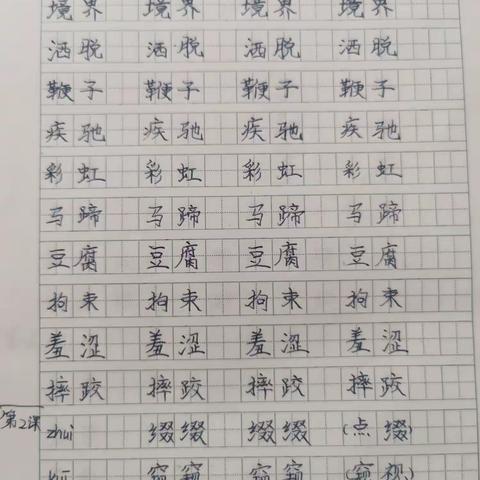 境界 境界 境界 境界
洒脱 洒脱 洒脱 洒脱
鞭子 鞭子 鞭子 鞭子
疾驰 疾驰 疾驰 疾驰
彩虹 彩虹 彩虹 彩虹
马蹄 马蹄 马蹄 马蹄
豆腐 豆腐 豆腐 豆腐
拘束 拘束 拘束 拘束
羞涩 羞涩 羞涩 羞涩
摔跤 摔跤 摔跤 摔跤
第2课 zhui 缀缀 缀缀 (点缀)
kuī 窥窥 窥窥 (窥视)